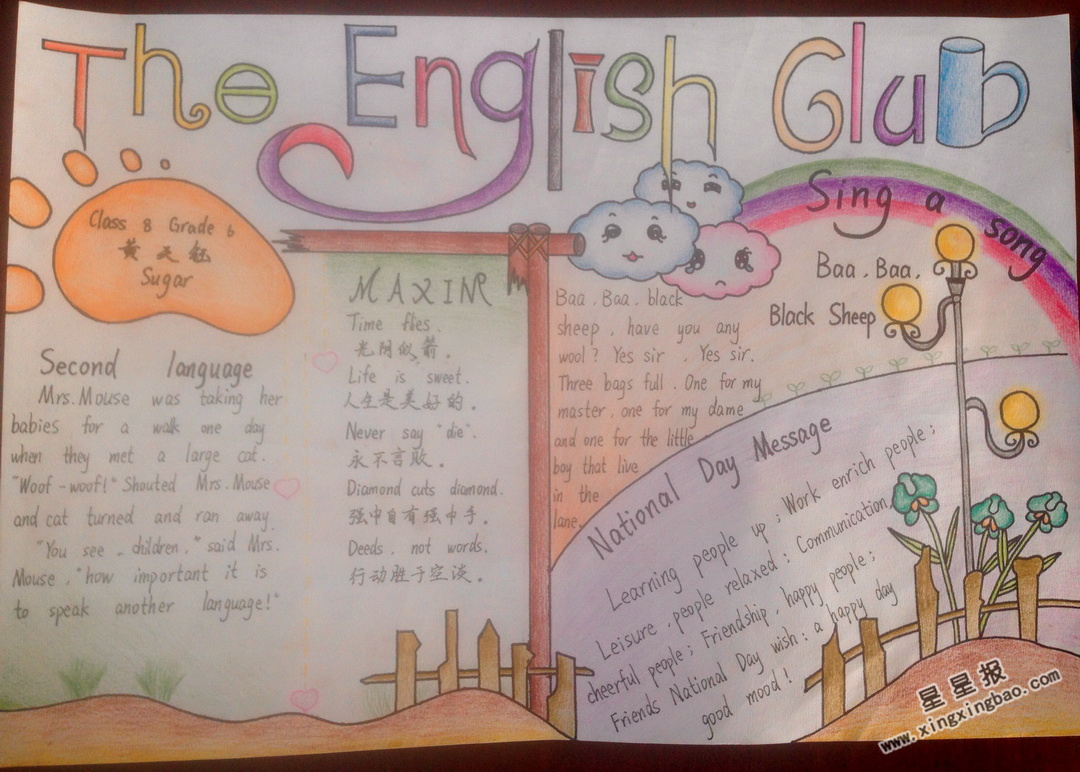 The English Glub
Class 8 Grade 6
黄天钰
Sugar
Second language
Mrs. Mouse was taking her
babies for a walk one day
when they met a large cat.
"Woof-woof!" Shouted Mrs. Mouse
and cat turned and ran away.
"You see, children," said Mrs.
Mouse, "how important it is
to speak another language!"
MAXIM
Time flies.
光阴似箭。
Life is sweet.
人生是美好的。
Never say "die".
永不言败。
Diamond cuts diamond.
强中自有强中手。
Deeds, not words.
行动胜于空谈。
Sing a song
Baa, Baa,
Black Sheep
Baa, Baa, black
sheep, have you any
wool? Yes sir, Yes sir.
Three bags full. One for my
master, one for my dame
and one for the little
boy that live
in the
lane.
National Day Message
Learning people up; Work enrich people;
Leisure, people relaxed; Communication,
cheerful people; Friendship, happy people;
Friends National Day wish: a happy day
good mood!
星星报
www.xingxingbao.com